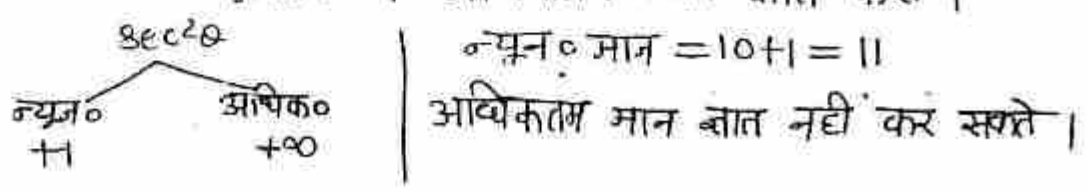 sec²θ
न्यून० अधिक०
+1 +∞
न्यून० मान = 10+1 = 11
अधिकतम मान ज्ञात नहीं कर सकते ।